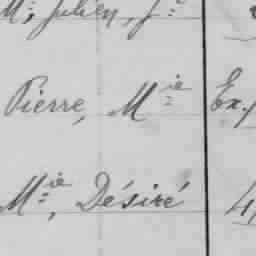 M; Julien, J
Pierre, Mie Ex.
Mie, Désiré